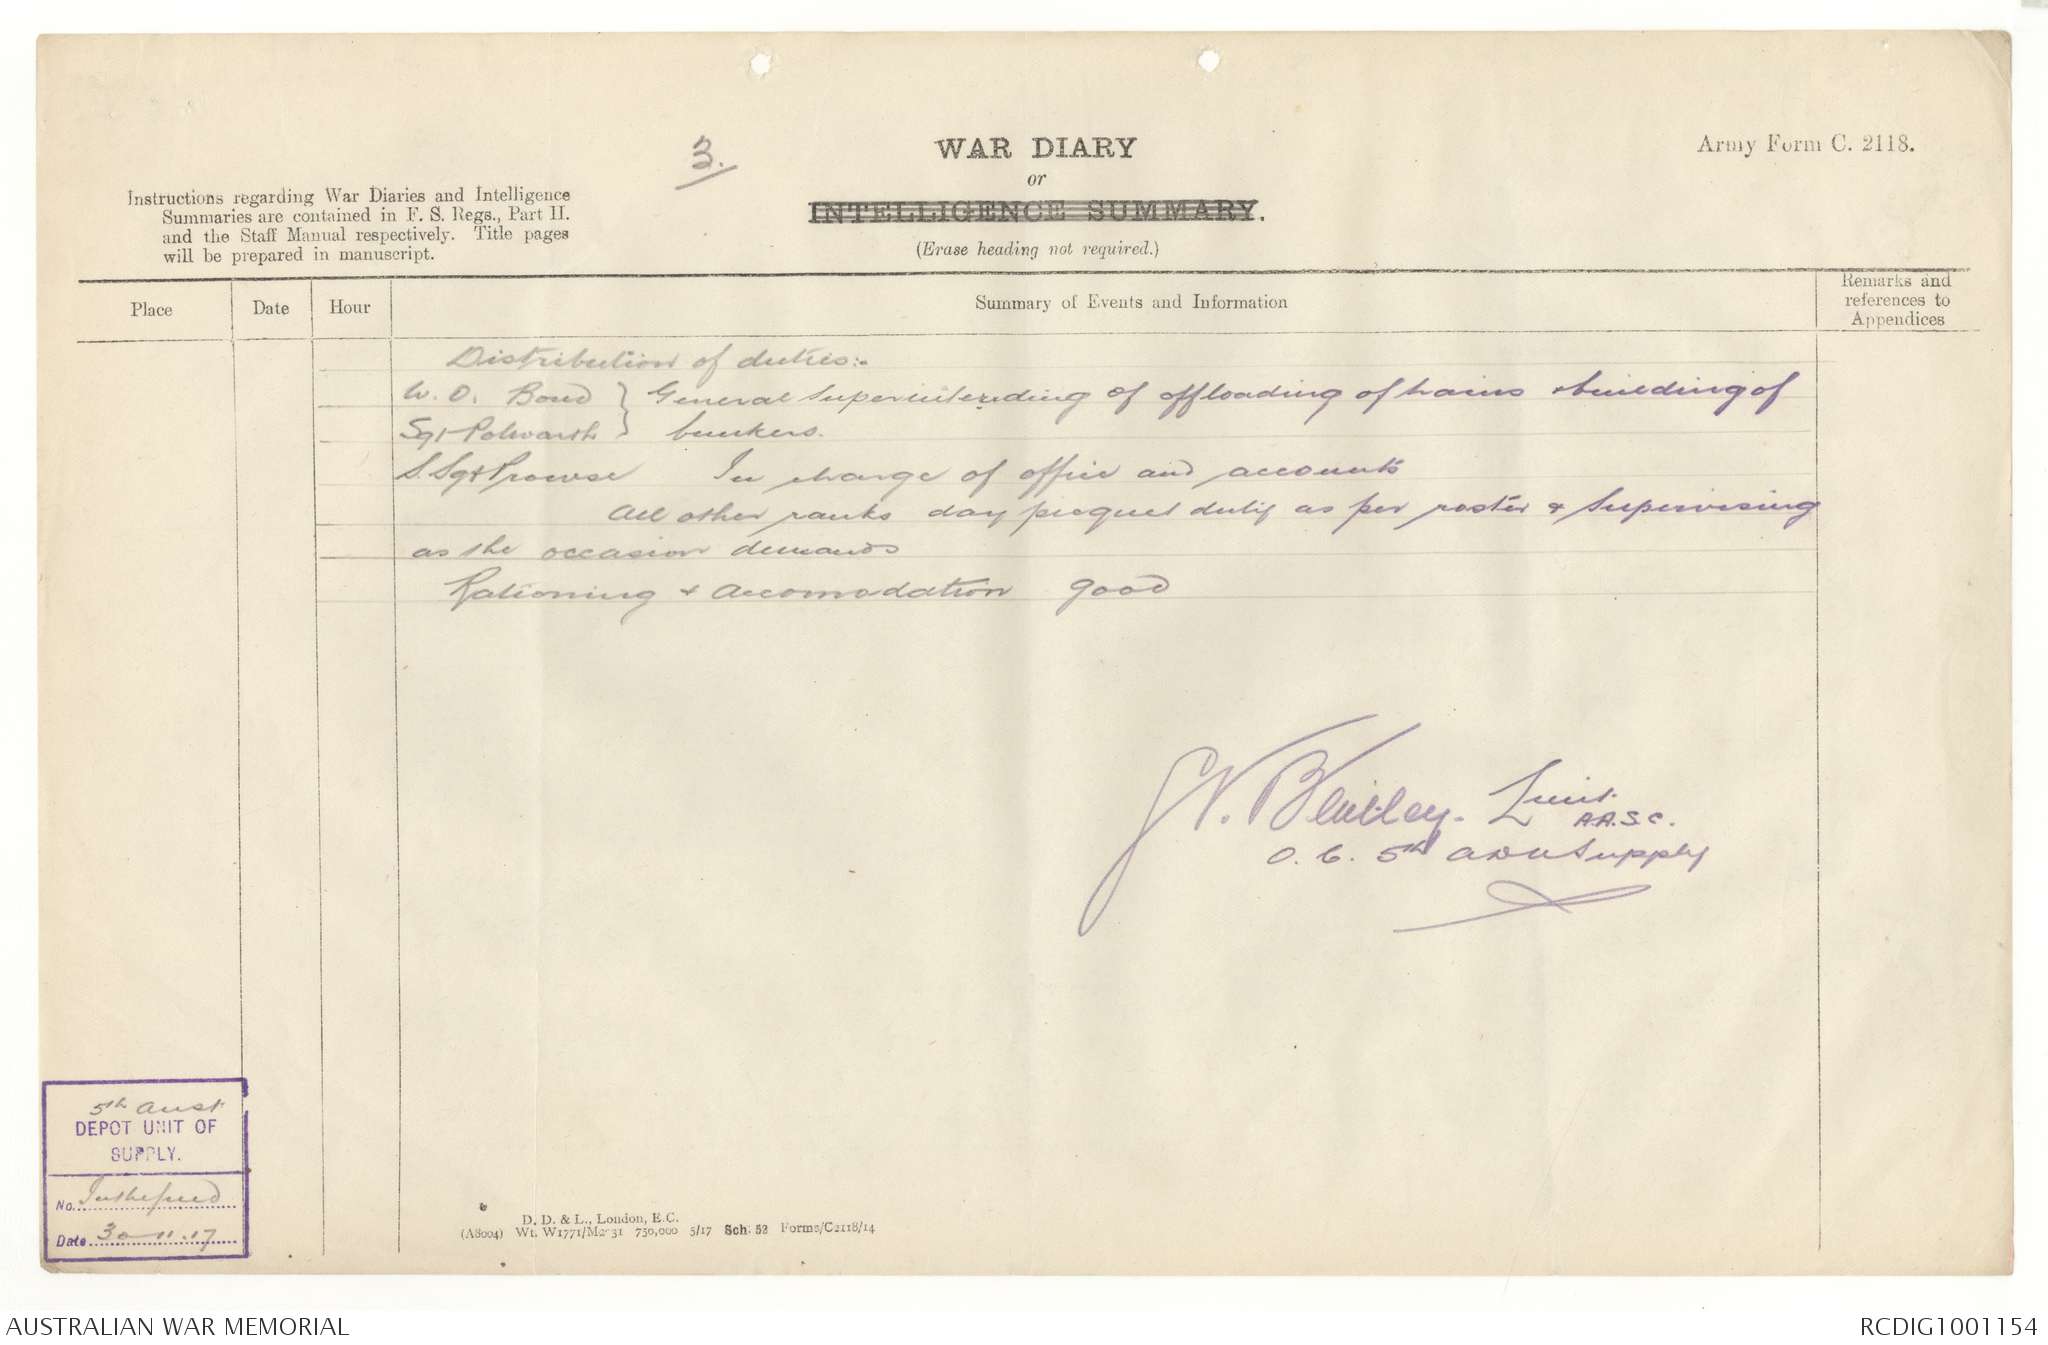 3.
WAR DIARY
or
INTELLIGENCE SUMMARY.
(Erase heading not required.)
Army Form C. 2118.
Instructions regarding War Diaries and Intelligence
Summaries are contained in F. S. Regs., Part II.
and the Staff Manual respectively. Title pages
will be prepared in manuscript.
Place Date Hour Summary of Events and Information Remarks and references to Appendices
Distribution of duties:-
W. O. Bond } General Superintending of offloading of trains & building of
Sgt Polwarth } bunkers.
S. Sgt Prowse In charge of office and accounts
All other ranks day picquet duty as per roster & Supervising
as the occasion demands
Rationing & Accomodation good
Lieut.
A.A.S.C.
O. C. 5th ADU Supply
5th Aust
DEPOT UNIT OF
SUPPLY.
No. In the field
Date 30.11.17
D. D. & L., London, E.C.
(A8004) Wt. W1771/M2 31 750,000 5/17 Sch. 52 Forms/C2118/14
AUSTRALIAN WAR MEMORIAL
RCDIG1001154